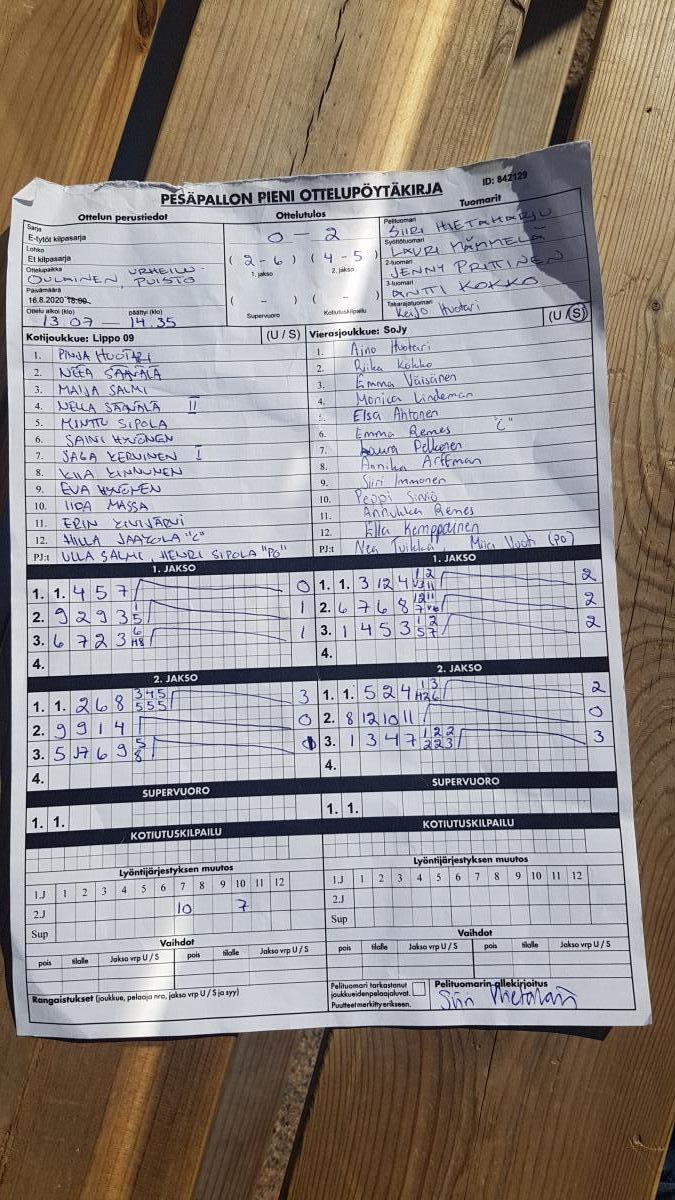 PESÄPALLON PIENI OTTELUPÖYTÄKIRJA
ID: 842129
Ottelun perustiedot
Ottelutulos
Tuomarit
Sarja
E-tytöt kilpasarja
Lohko
Et kilpasarja
Ottelupaikka
OULAINEN, URHEILU-
PUISTO
Päivämäärä
16.8.2020 18:00
Ottelu alkoi (klo) päättyi (klo)
13.07 — 14.35
0 — 2
(2-6) (4-5)
1. jakso 2. jakso
( - ) ( - )
Supervuoro Kotiutuskilpailu
Pelituomari
SIIRI HIETAHARJU
Syöttötuomari
LAURI MÄMMELÄ
2-tuomari
JENNY PRITTINEN
3-tuomari
ANTTI KOKKO
Takarajatuomari
Keijo Huotari
Kotijoukkue: Lippo 09 (U / S)
1. PINJA HUOTARI
2. NEEA SÄÄNÄLÄ
3. MAIJA SALMI
4. NELLA SÄÄNÄLÄ II
5. MINTTU SIPOLA
6. SAINI HYVÖNEN
7. SAGA KERVINEN I
8. KIIA KINNUNEN
9. EVA HYVÖNEN
10. IIDA MASSA
11. ERIN KIVIJÄRVI
12. HILLA JAAKOLA "C"
PJ:t ULLA SALMI, HENRI SIPOLA "PO"
Vierasjoukkue: SoJy (U / S)
1. Aino Huotari
2. Riika Kokko
3. Emma Väisänen
4. Monica Lindeman
5. Elsa Ahtonen
6. Emma Remes "C"
7. Laura Pelkonen
8. Annika Arffman
9. Siiri Immonen
10. Peppi Sirviö
11. Annukka Remes
12. Ella Kemppainen
PJ:t Nea Tuikka Miia Vuoti (PO)
1. JAKSO
1. 1. 4 5 7 0
2. 9 2 9 3 1
3. 6 7 2 3 1
4.
1. JAKSO
1. 1. 3 12 4 2
2. 6 7 6 8 2
3. 1 4 5 3 2
4.
2. JAKSO
1. 1. 2 6 8 345 555 3
2. 9 9 1 4 0
3. 5 6 9
4.
2. JAKSO
1. 1. 5 2 4 2
2. 8 12 10 11 0
3. 1 3 4 7 122 223 3
4.
SUPERVUORO
1. 1.
SUPERVUORO
1. 1.
KOTIUTUSKILPAILU
KOTIUTUSKILPAILU
Lyöntijärjestyksen muutos
1.J 1 2 3 4 5 6 7 8 9 10 11 12
2.J 10 7
Sup
Lyöntijärjestyksen muutos
1.J 1 2 3 4 5 6 7 8 9 10 11 12
2.J
Sup
Vaihdot
pois tilalle Jakso vrp U / S pois tilalle Jakso vrp U / S
Vaihdot
pois tilalle Jakso vrp U / S pois tilalle Jakso vrp U / S
Rangaistukset (joukkue, pelaaja nro, jakso vrp U / S ja syy)
Pelituomari tarkastanut
joukkueiden pelaajaluvat.
Puutteet merkitty erikseen.
Pelituomarin allekirjoitus